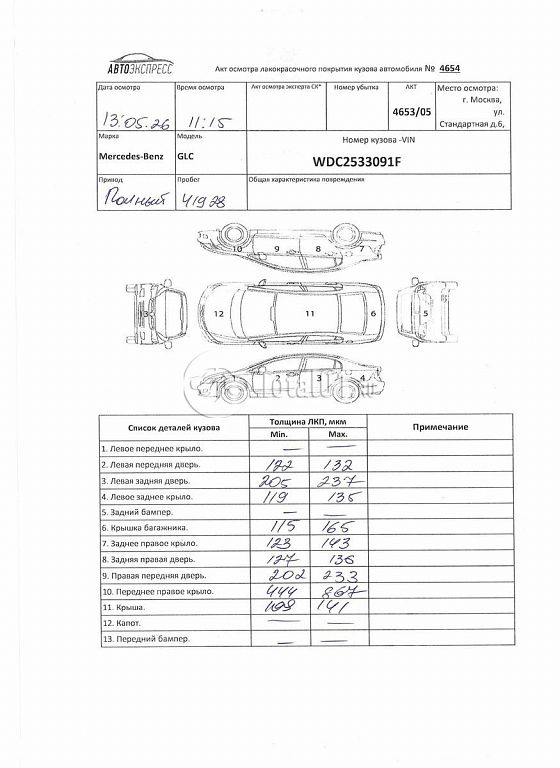 АВТОЭКСПРЕСС
Акт осмотра лакокрасочного покрытия кузова автомобиля № 4654
Дата осмотра Время осмотра Акт осмотра эксперта СК* Номер убытка АКТ Место осмотра:
13.05.26 11:15 4653/05 г. Москва,
ул.
Стандартная д.6,
Марка Модель Номер кузова -VIN
Mercedes-Benz GLC WDC2533091F
Привод Пробег Общая характеристика повреждений
Полный 41928
10 9 8 7
13 12 11 6 5
1 2 3 4
Список деталей кузова Толщина ЛКП, мкм Примечание
Min. Max.
1. Левое переднее крыло. — —
2. Левая передняя дверь. 122 132
3. Левая задняя дверь. 205 237
4. Левое заднее крыло. 119 135
5. Задний бампер. — —
6. Крышка багажника. 115 165
7. Заднее правое крыло. 123 143
8. Задняя правая дверь. 127 136
9. Правая передняя дверь. 202 233
10. Переднее правое крыло. 444 867
11. Крыша. 141
12. Капот. — —
13. Передний бампер. — —